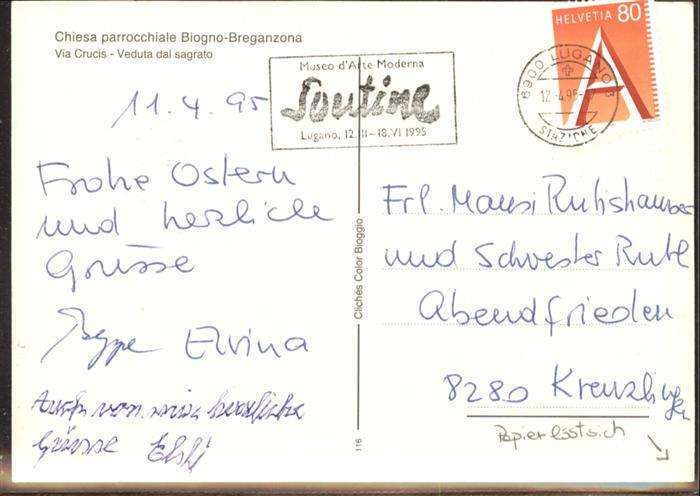 Chiesa parrocchiale Biogno-Breganzona
Via Crucis - Veduta dal sagrato
11.4.95
Frohe Ostern
und herzliche
Grüsse
Beppe Elvina
Auch von mir herzliche
Grüsse Elsi
Clichés Color Bioggio
116
Museo d'Arte Moderna
Soutine
Lugano, 12.III-18.VI 1995
HELVETIA 80
A
6900 LUGANO 3
12.4.95
STAZIONE
Frl. Mausi Rutishauser
und Schwester Ruth
Abendfrieden
8280 Kreuzlingen
Papier löst sich